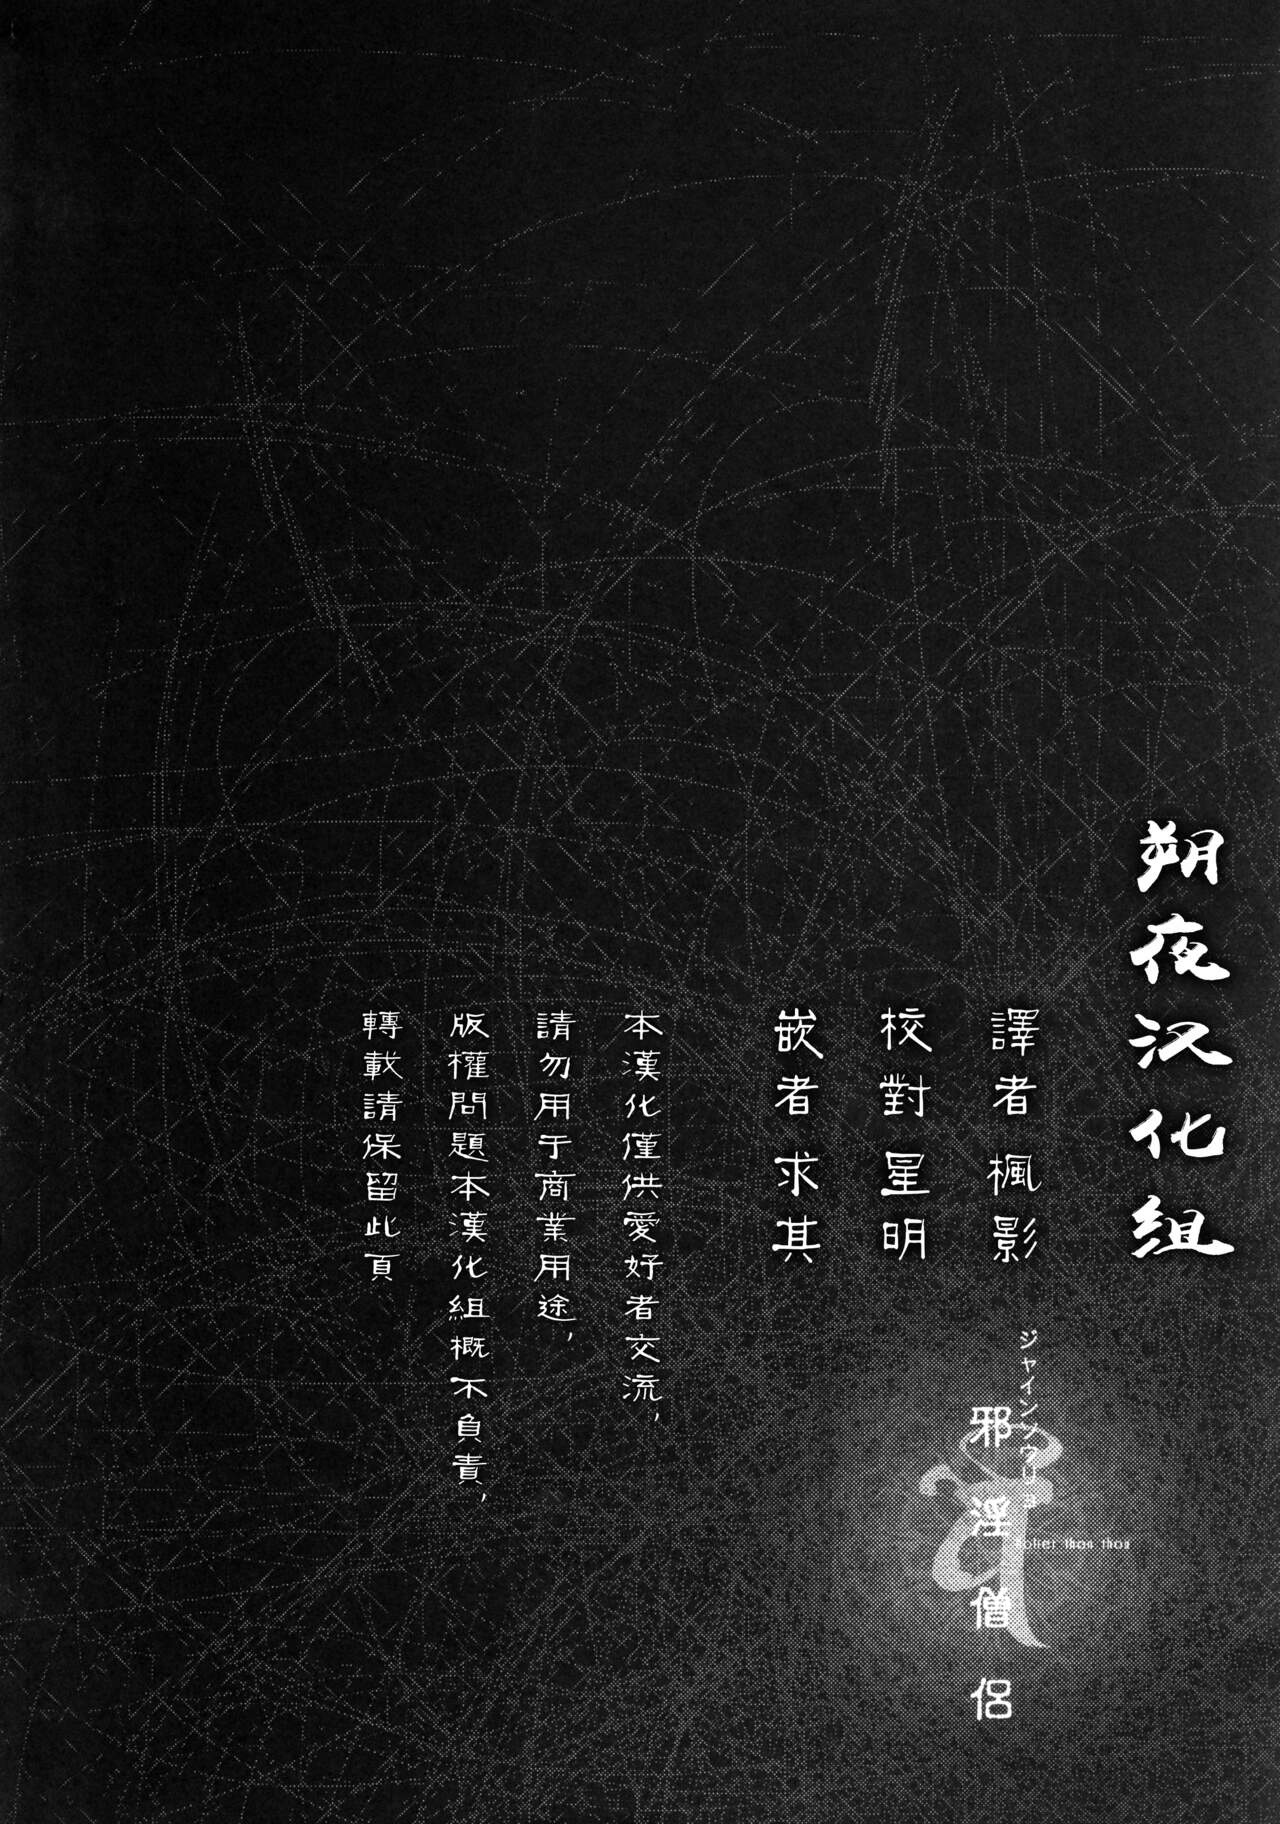 朔夜汉化组
譯者楓影
校對星明
嵌者求其
本漢化僅供愛好者交流,
請勿用于商業用途,
版權問題本漢化組概不負責,
轉載請保留此頁
ジャインソウリョ
邪淫僧侶
Holier than thou